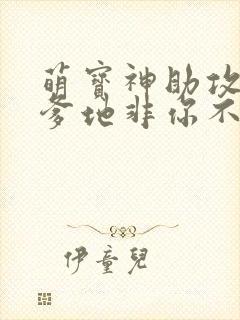 萌寶神助攻
爹地非你不
伊童兒